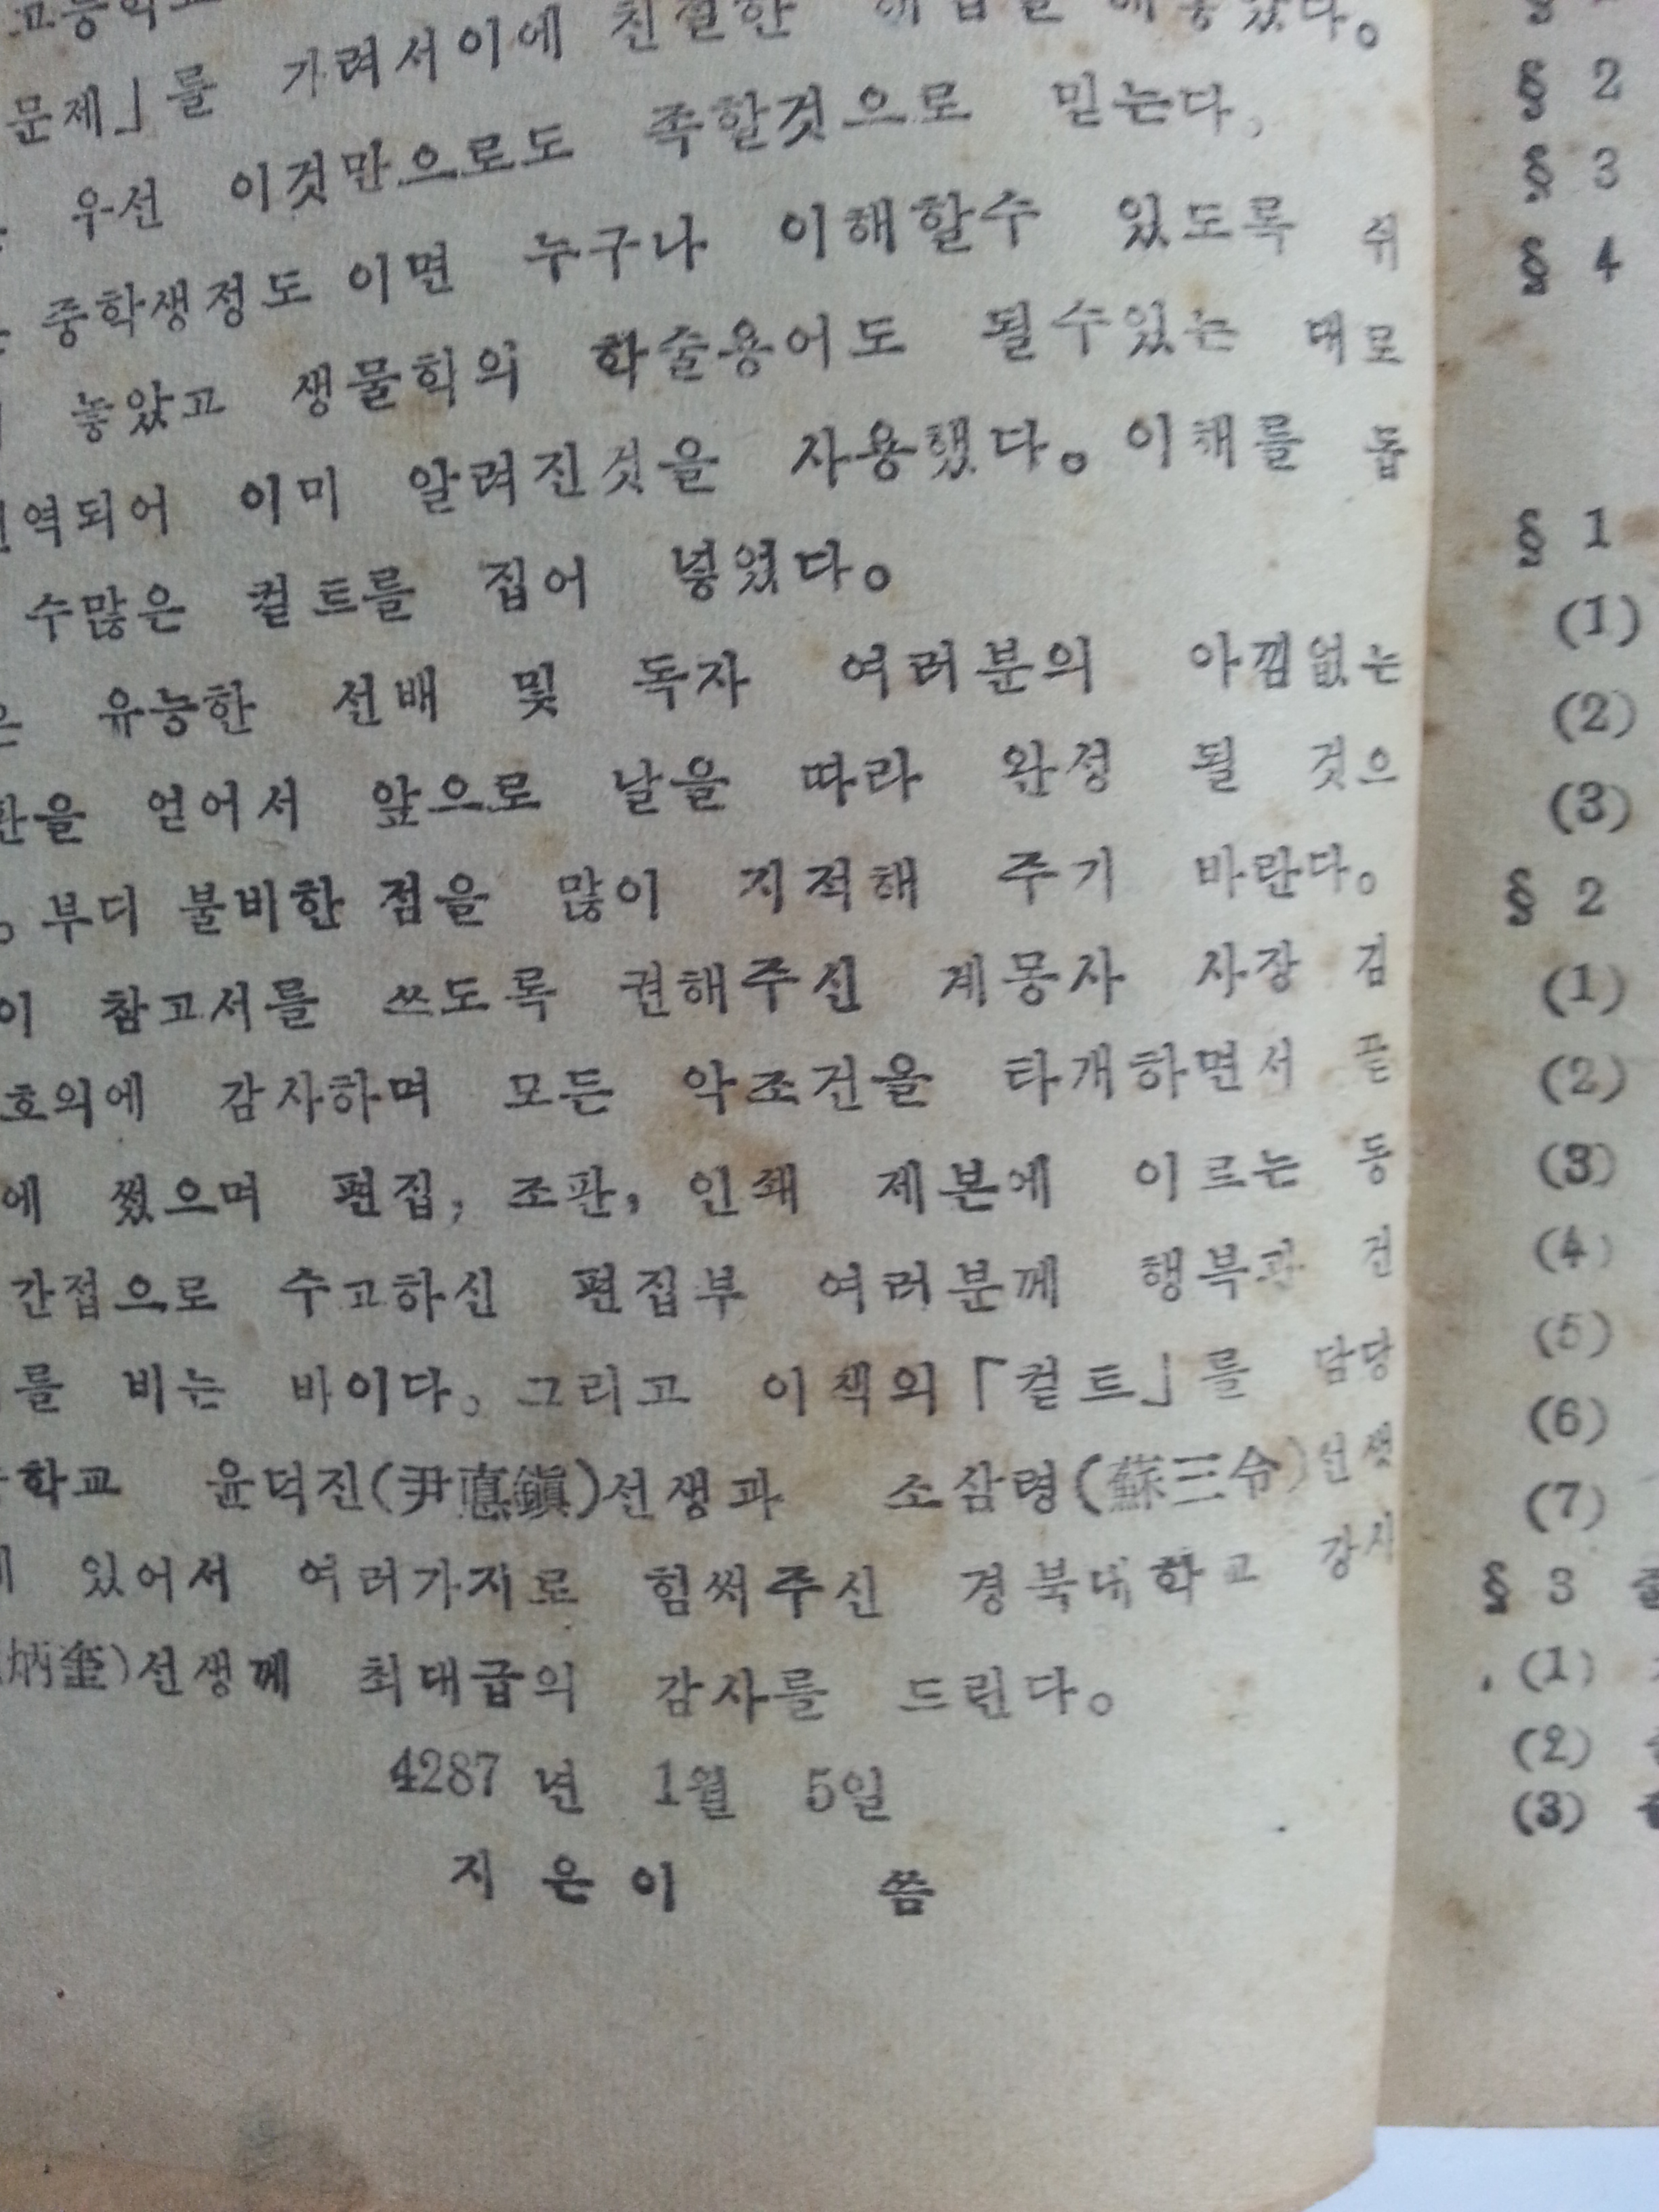 문제」를 가려서이에 친절한 해답을 해놓았다。
우선 이것만으로도 족할것으로 믿는다。
중학생정도 이면 누구나 이해할수 있도록 쉬
놓았고 생물학의 학술용어도 될수있는 대로
역되어 이미 알려진것을 사용했다。이해를 돕
수많은 컽트를 집어 넣었다。
유능한 선배 및 독자 여러분의 아낌없는
을 얻어서 앞으로 날을 따라 완성 될 것으
。부디 불비한 점을 많이 지적해 주기 바란다。
이 참고서를 쓰도록 권해주신 계몽사 사장 김
호의에 감사하며 모든 악조건을 타개하면서 끝
에 썼으며 편집, 조판, 인쇄 제본에 이르는 동
간접으로 수고하신 편집부 여러분께 행복과 건
를 비는 바이다。그리고 이책의「컽트」를 담당
학교 윤덕진(尹悳鎭)선생과 소삼령(蘇三令)선생
있어서 여러가지로 힘써주신 경북대학교 강사
선생께 최대급의 감사를 드린다。
4287 년 1월 5일
지 은 이 씀
§ 2
§ 3
§ 4
§ 1
(1)
(2)
(3)
§ 2
(1)
(2)
(3)
(4)
(5)
(6)
(7)
§ 3
(1)
(2)
(3)